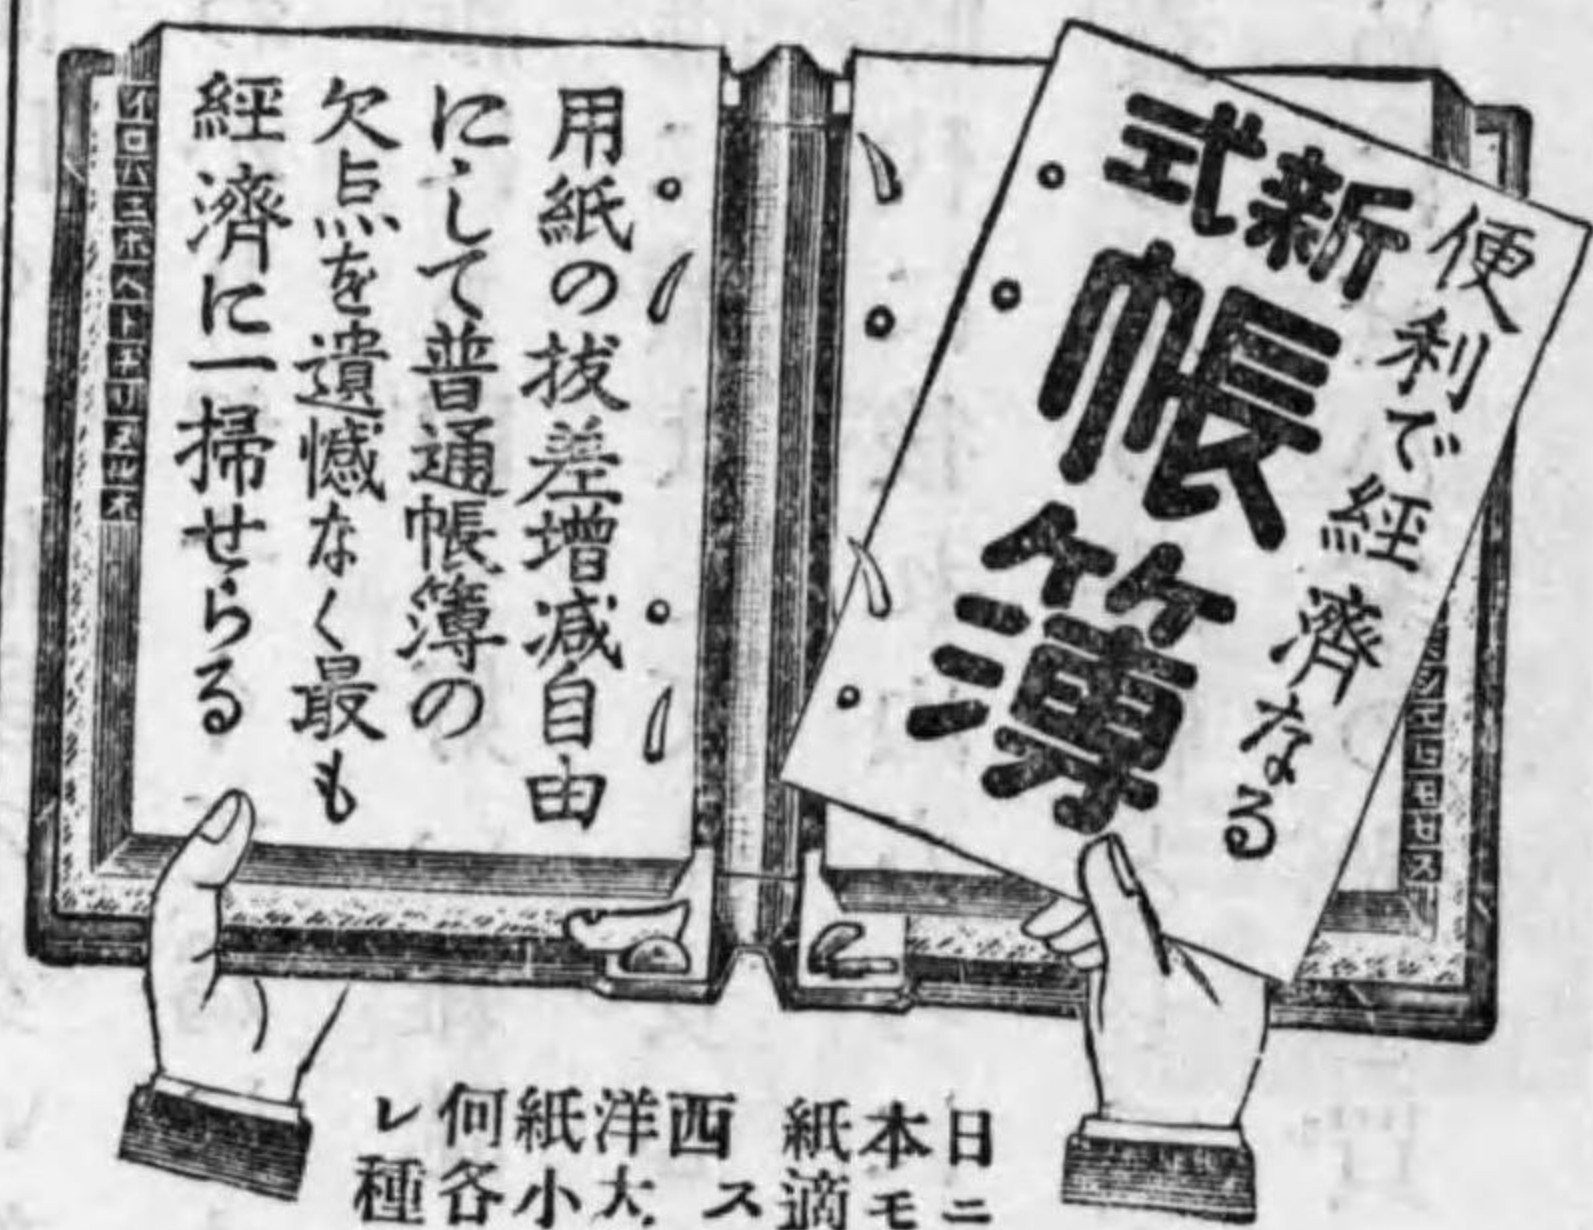 便利で経済なる
新式
帳簿
用紙の抜差増減自由
にして普通帳簿の
欠点を遺憾なく最も
経済に一掃せらる
イロハニホヘトチリヌルオ
シヱヒモセス
日本紙西洋紙何レ
ニモ適ス大小各種